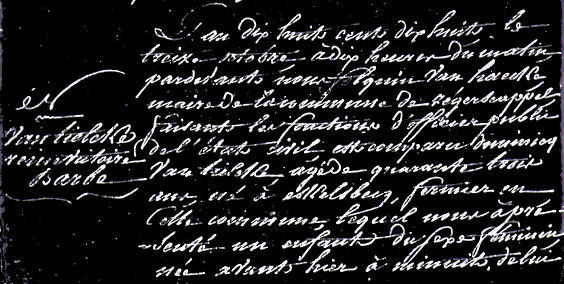 L'an dix huit cent dix huit le
treize octobre à dix heures du matin
pardevant nous folquin Van haecke
maire de la commune de Zegerscappel
faisants les fonctions d'officier public
de l'état civil est comparu dominicq
Van kielcke agéde quarante trois
ans, né à esKelsbecq, fermier en
cette commune, lequel nous à pré-
-senté un enfant du sexe feminin
née avants hier à minuit, de lui
N
Van kielcke
Barbe